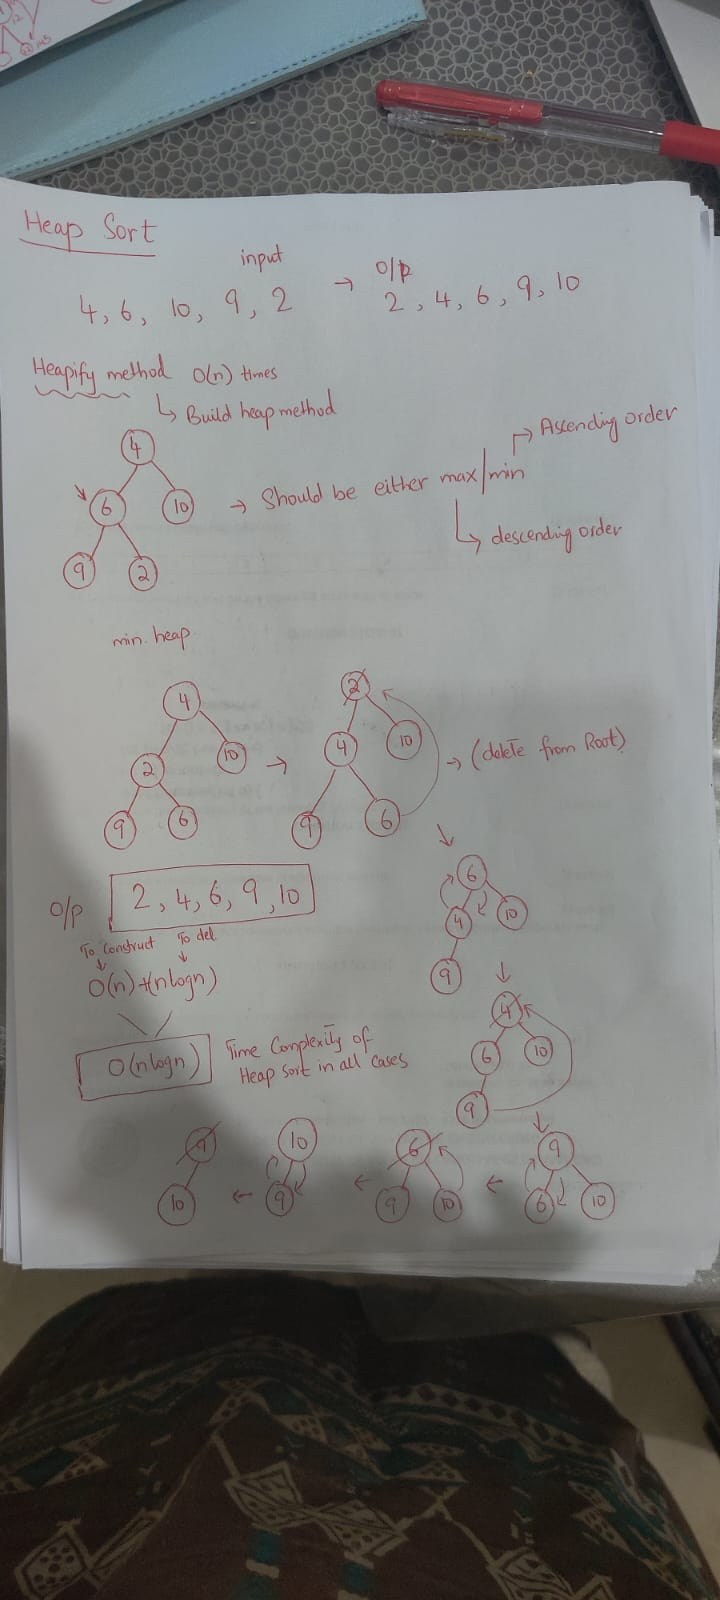 Heap Sort
input
→ o/p
4, 6, 10, 9, 2
2, 4, 6, 9, 10
Heapify method O(n) times
↳ Build heap method
4
6 10
9 2
→ Should be either max/min
Ascending order
descending order
min. heap
4
2 10
9 6
→
2
4 10
9 6
→ (delete from Root)
6
4 10
9
O/p 2, 4, 6, 9, 10
To Construct To del
O(n)+(nlogn)
O(nlogn)
Time Complexity of
Heap Sort in all Cases
4
6 10
9
9
6 10
←
6
9 10
←
10
9
←
9
10